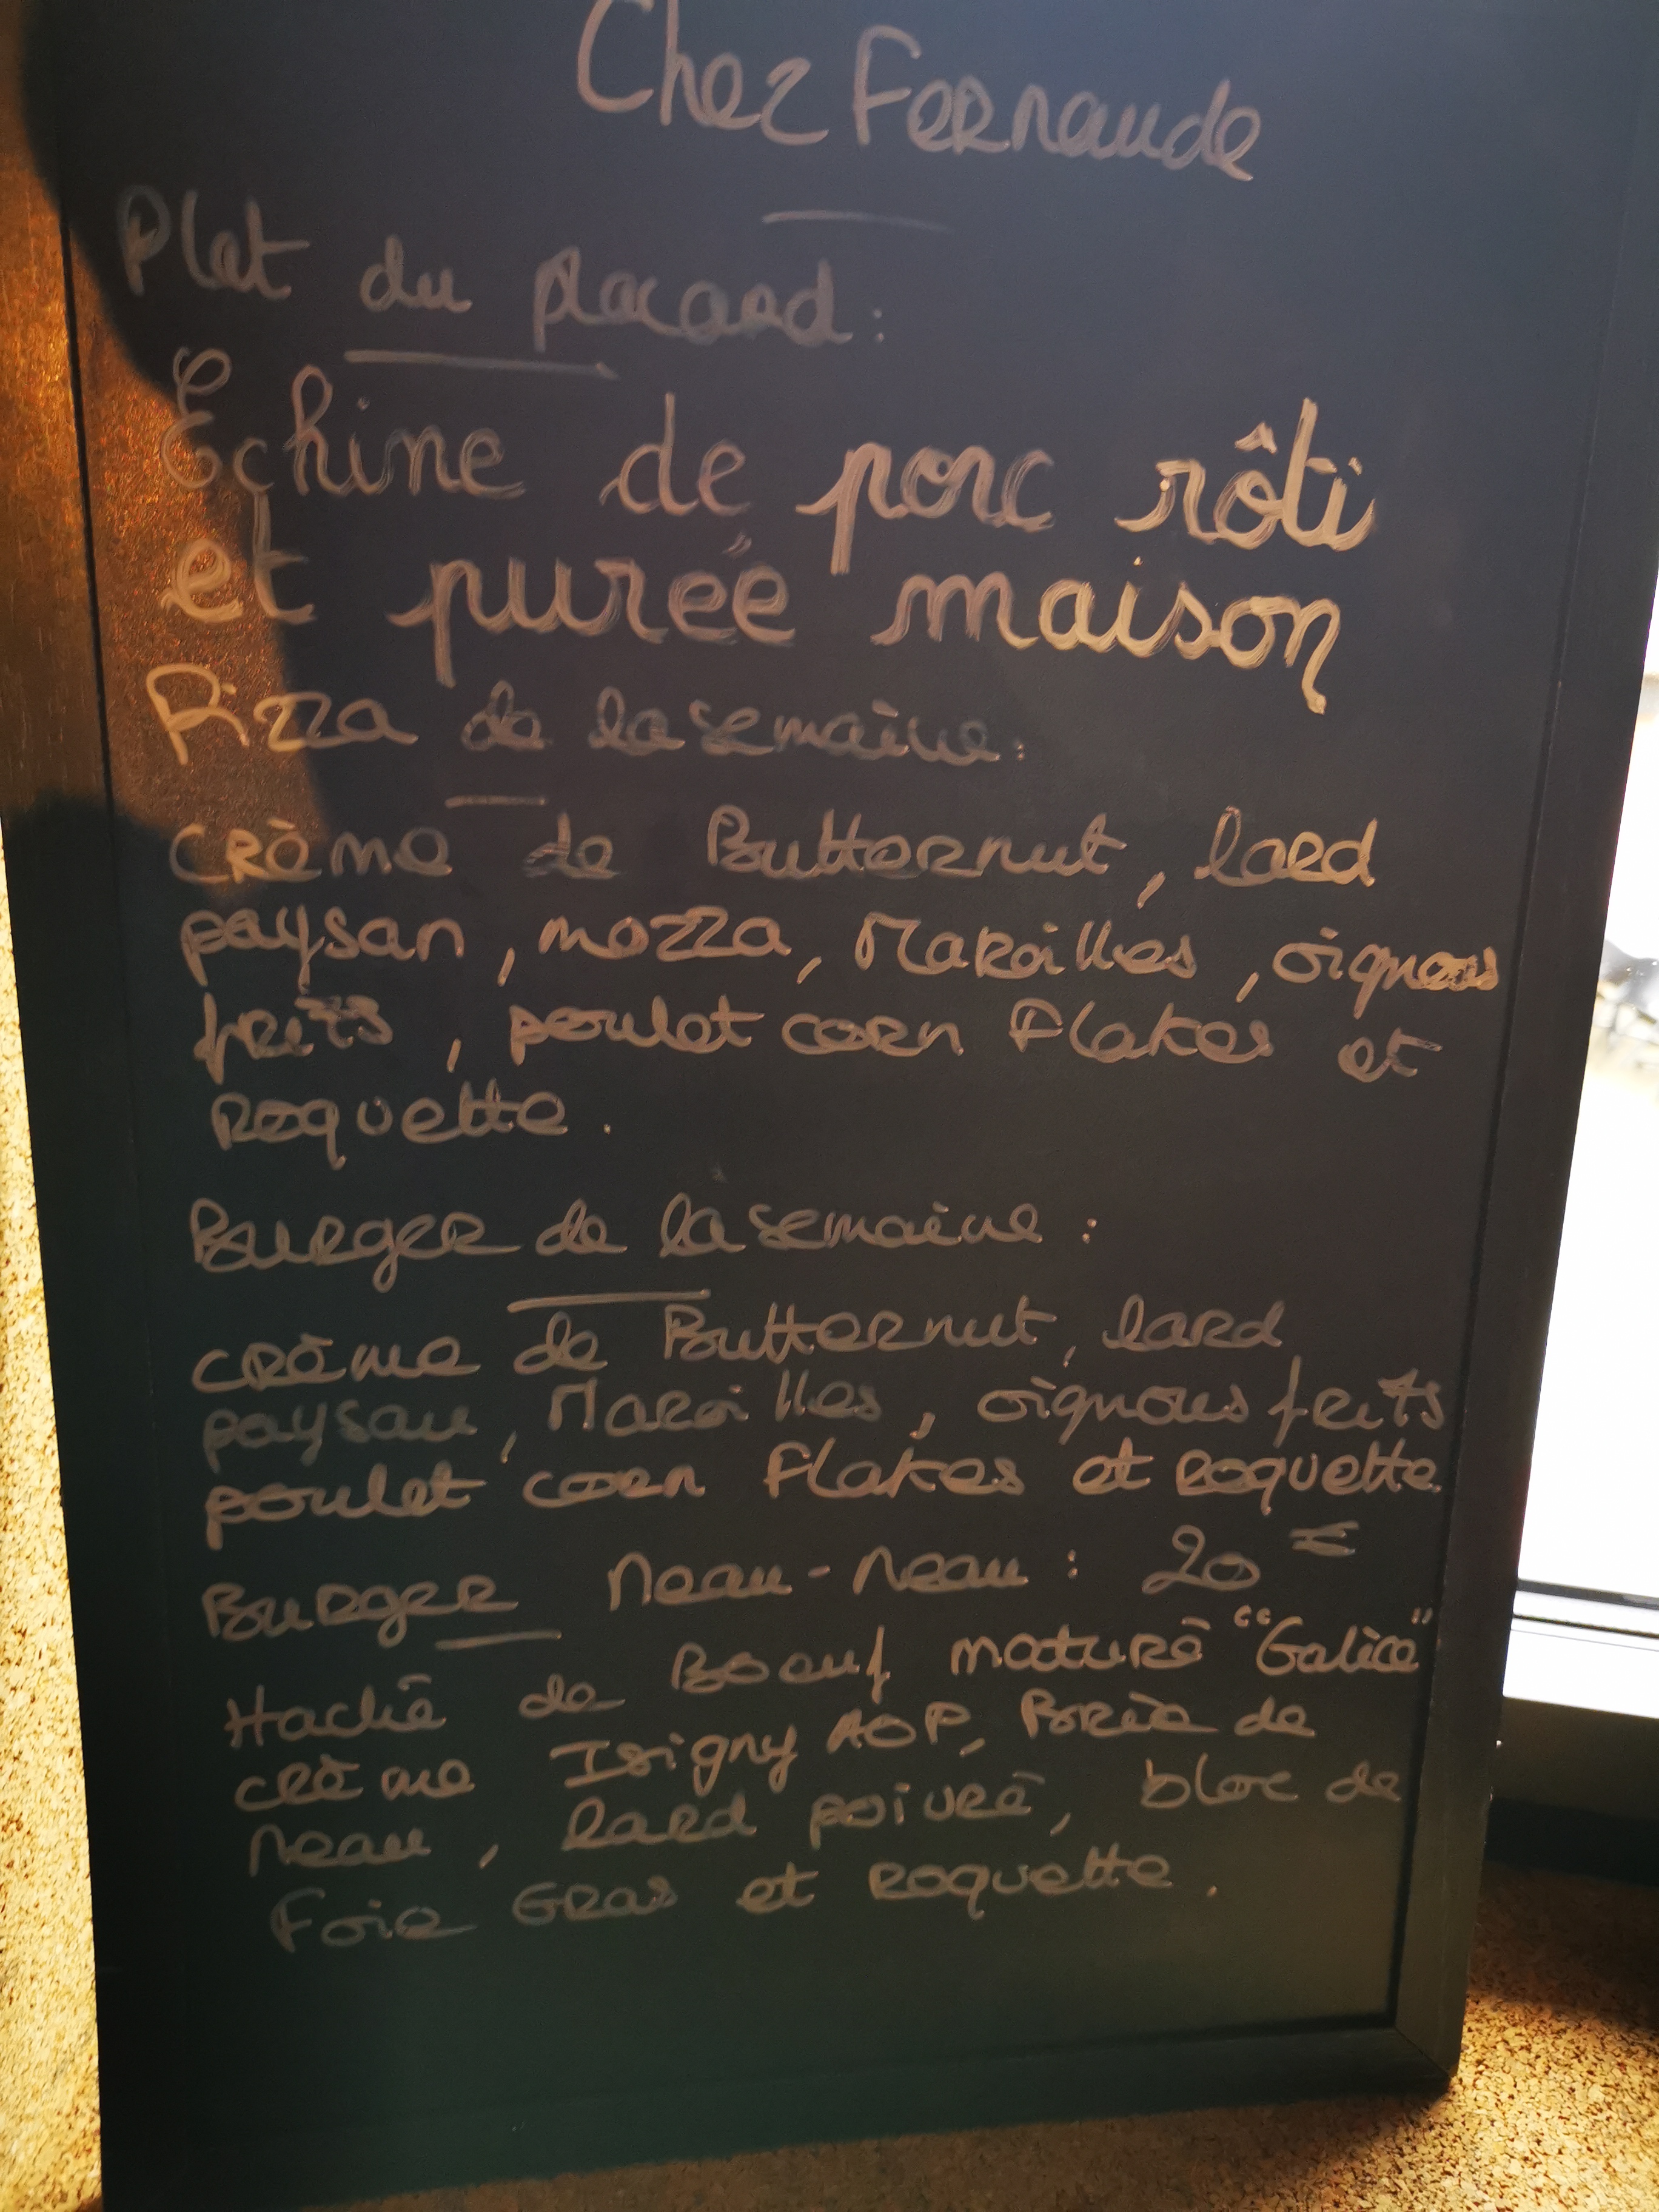 Chez Fernande
Plat du placard :
Echine de porc rôti
et purée maison
Pizza de la semaine :
Crème de Butternut, lard
paysan, mozza, Maroilles, oignons
frits, poulet corn Flakes et
roquette.
Burger de la semaine :
crème de Butternut, lard
paysan, Maroilles, oignons frits
poulet corn Flakes et roquette
Burger Meau-Meau : 20 €
Haché de Boeuf maturé "Galice"
crème Isigny AOP, Brie de
Meau, lard poivré, bloc de
Foie Gras et roquette.